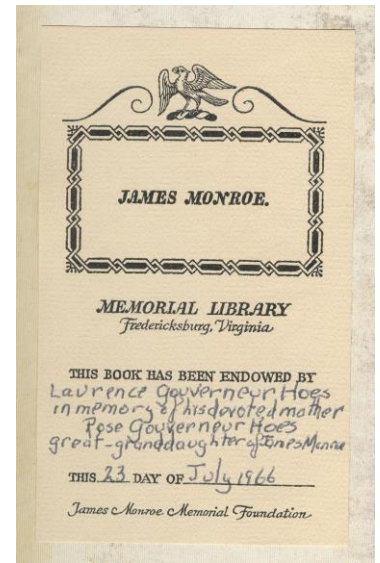 JAMES MONROE.
MEMORIAL LIBRARY
Fredericksburg, Virginia
THIS BOOK HAS BEEN ENDOWED BY
Laurence Gouverneur Hoes
in memory of his devoted mother
Rose Gouverneur Hoes
great-granddaughter of James Monroe
THIS 23 DAY OF July 1966
James Monroe Memorial Foundation